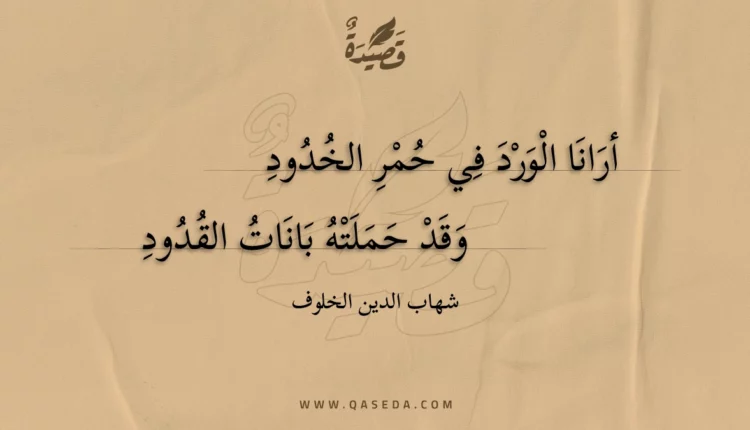 قَصِيدَةٌ
أرَانَا الْوَرْدَ فِي حُمْرِ الخُدُودِ
وَقَدْ حَمَلَتْهُ بَانَاتُ القُدُودِ
شهاب الدين الخلوف
WWW.QASEDA.COM